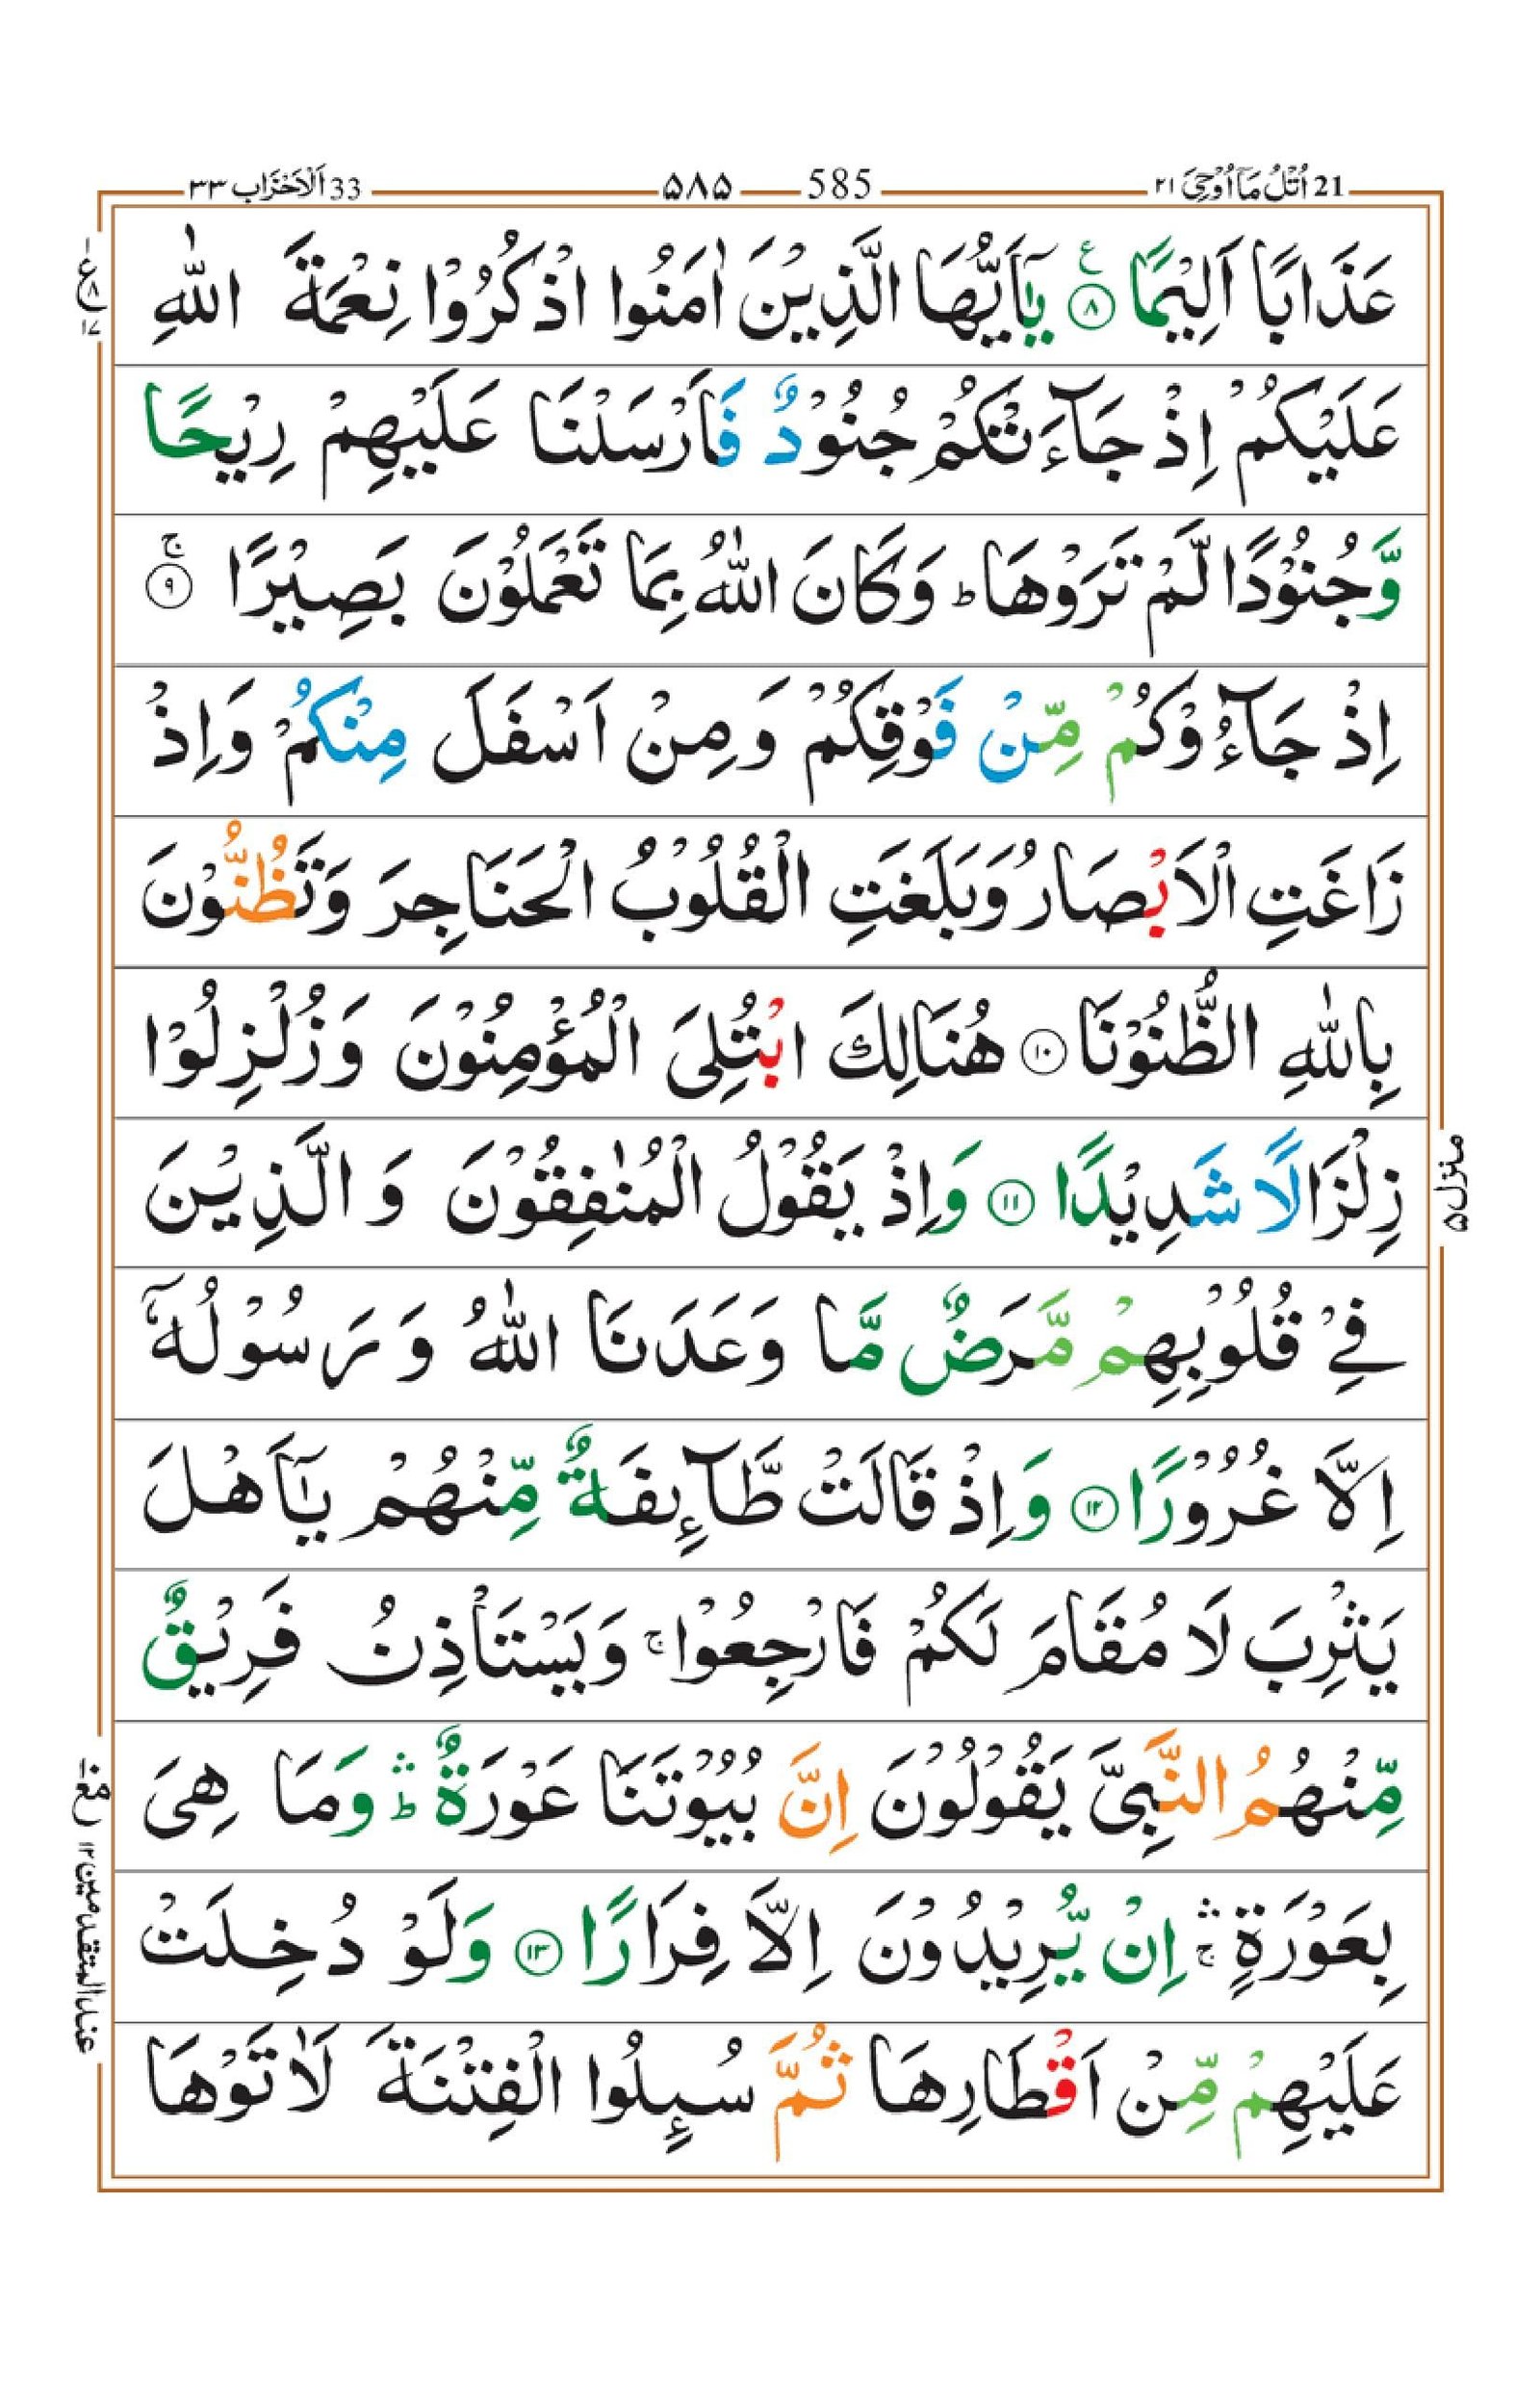 21 اُتْلُ مَآ اُوْحِیَ ۲۱
585 ۵۸۵
33 اَلْاَحْزَاب ۳۳
عَذَابًا اَلِيْمًا ۸ ع يٰۤاَيُّهَا الَّذِيْنَ اٰمَنُوا اذْكُرُوْا نِعْمَةَ اللّٰهِ
عَلَيْكُمْ اِذْ جَآءَتْكُمْ جُنُوْدٌ فَاَرْسَلْنَا عَلَيْهِمْ رِيْحًا
وَّجُنُوْدًا لَّمْ تَرَوْهَا ؕ وَكَانَ اللّٰهُ بِمَا تَعْمَلُوْنَ بَصِيْرًا ۹ ۚ
اِذْ جَآءُوْكُمْ مِّنْ فَوْقِكُمْ وَمِنْ اَسْفَلَ مِنْكُمْ وَاِذْ
زَاغَتِ الْاَبْصَارُ وَبَلَغَتِ الْقُلُوْبُ الْحَنَاجِرَ وَتَظُنُّوْنَ
بِاللّٰهِ الظُّنُوْنَا ۱۰ هُنَالِكَ ابْتُلِىَ الْمُؤْمِنُوْنَ وَزُلْزِلُوْا
زِلْزَالًا شَدِيْدًا ۱۱ وَاِذْ يَقُوْلُ الْمُنٰفِقُوْنَ وَالَّذِيْنَ
فِىْ قُلُوْبِهِمْ مَّرَضٌ مَّا وَعَدَنَا اللّٰهُ وَرَسُوْلُهٗۤ
اِلَّا غُرُوْرًا ۱۲ وَاِذْ قَالَتْ طَّآئِفَةٌ مِّنْهُمْ يٰۤاَهْلَ
يَثْرِبَ لَا مُقَامَ لَكُمْ فَارْجِعُوْا ۚ وَيَسْتَاْذِنُ فَرِيْقٌ
مِّنْهُمُ النَّبِىَّ يَقُوْلُوْنَ اِنَّ بُيُوْتَنَا عَوْرَةٌ ۛؕ وَمَا هِىَ
بِعَوْرَةٍ ۛۚ اِنْ يُّرِيْدُوْنَ اِلَّا فِرَارًا ۱۳ وَلَوْ دُخِلَتْ
عَلَيْهِمْ مِّنْ اَقْطَارِهَا ثُمَّ سُئِلُوا الْفِتْنَةَ لَاٰتَوْهَا
ع ۸ ۱۷
منزل ۵
عند المتقدمين ۱۲